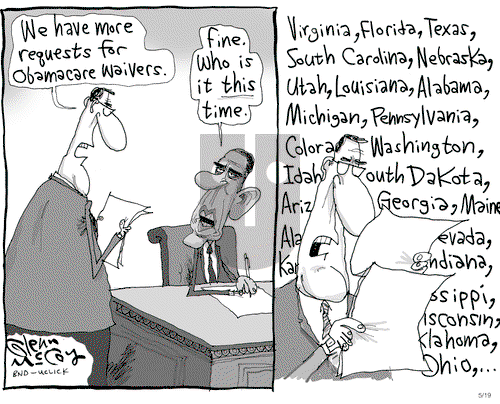 We have more
requests for
Obamacare waivers.
Fine.
Who is
it this
time.
Virginia, Florida, Texas,
South Carolina, Nebraska,
Utah, Louisiana, Alabama,
Michigan, Pennsylvania,
Colora Washington,
Idah outh Dakota,
Ariz Georgia, Maine
Ala evada,
Kan ndiana,
ssippi,
isconsin,
klahoma,
Ohio,...
Glenn
McCoy
BND-UCLICK
5/19